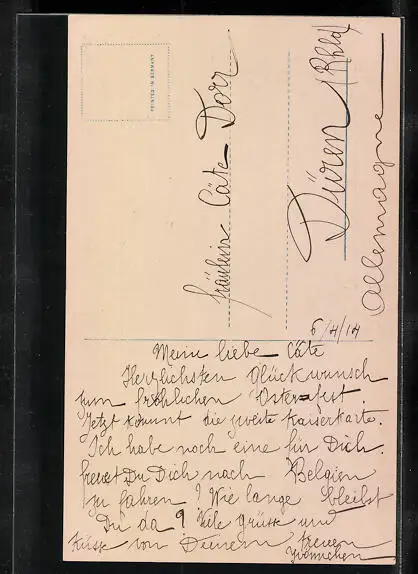 PRINTED IN GERMANY
Fräulein Cäte Dorr
Düren (Rhld)
Allemagne
6/4/14
Meine liebe Cäte
Herzlichsten Glückwunsch
zum fröhlichen Osterfest.
Jetzt kommt die zweite Kaiserkarte.
Ich habe noch eine für Dich.
freust Du Dich nach Belgien
zu fahren? Wie lange bleibst
Du da? Viele Grüsse und
Küsse von Deinem treuen
Yvönnchen